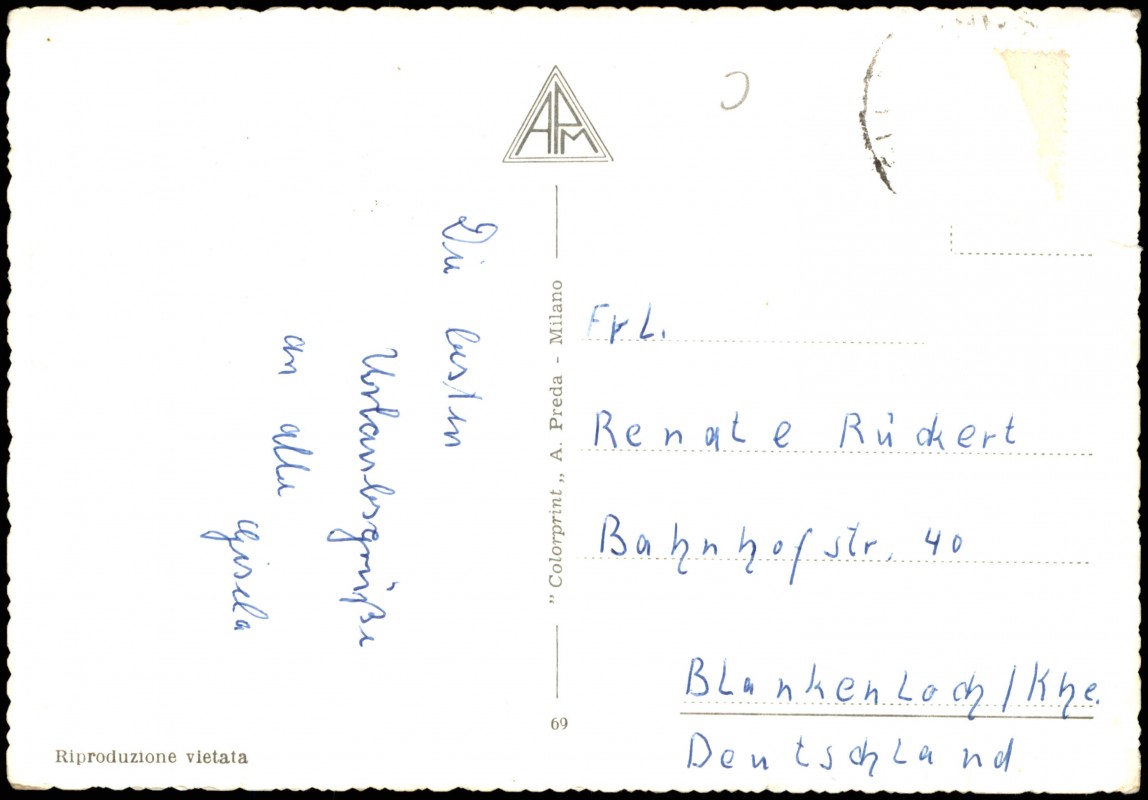 APM
Die besten
Urlaubsgrüße
an alle
Gisela
"Colorprint" A. Preda - Milano
69
Riproduzione vietata
Frl.
Renate Rückert
Bahnhofstr. 40
Blankenloch/Khe.
Deutschland